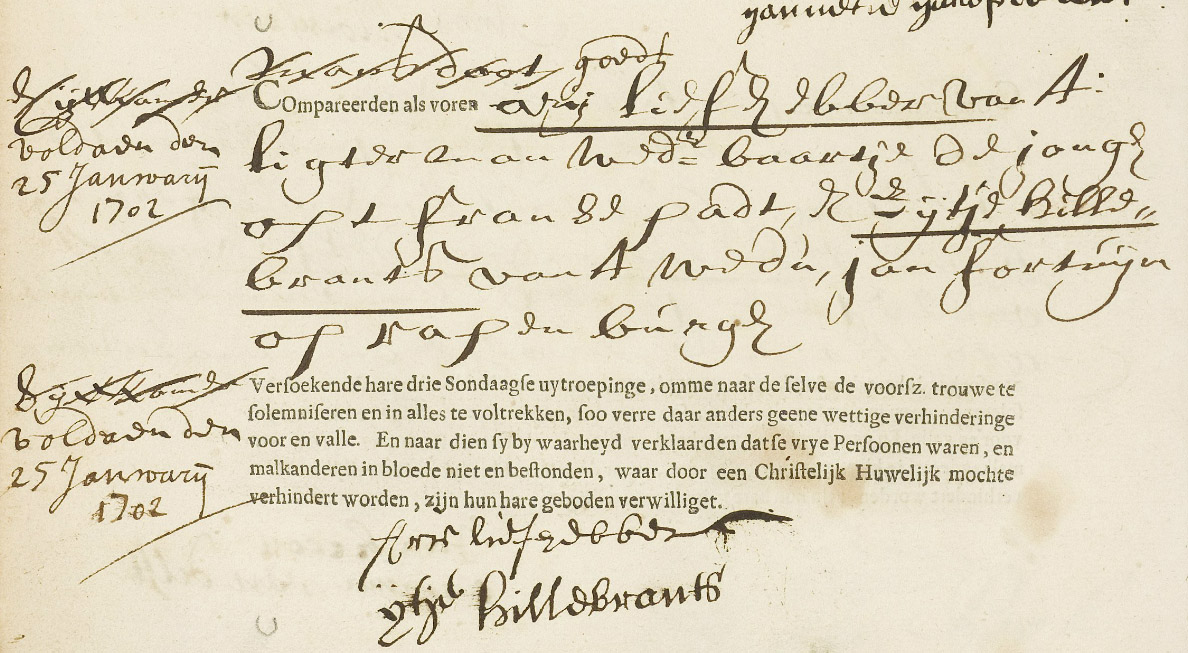 goedt
Compareerden als voren ary liefhebber van A:
ligterman wedr baartje de jongh
op t franse padt, & ijtje Hille„
brants van A wedu, jan fortuijn
op rapenburgh
voldaen den
25 Januarij
1702
Versoekende hare drie Sondaagse uytroepinge, omme naar de selve de voorsz. trouwe te
solemniseren en in alles te voltrekken, soo verre daar anders geene wettige verhinderinge
voor en valle. En naar dien sy by waarheyd verklaarden datse vrye Persoonen waren, en
malkanderen in bloede niet en bestonden, waar door een Christelijk Huwelijk mochte
verhindert worden, zijn hun hare geboden verwilliget.
voldaen den
25 Januarij
1702
liefhebber
ytje Hillebrants